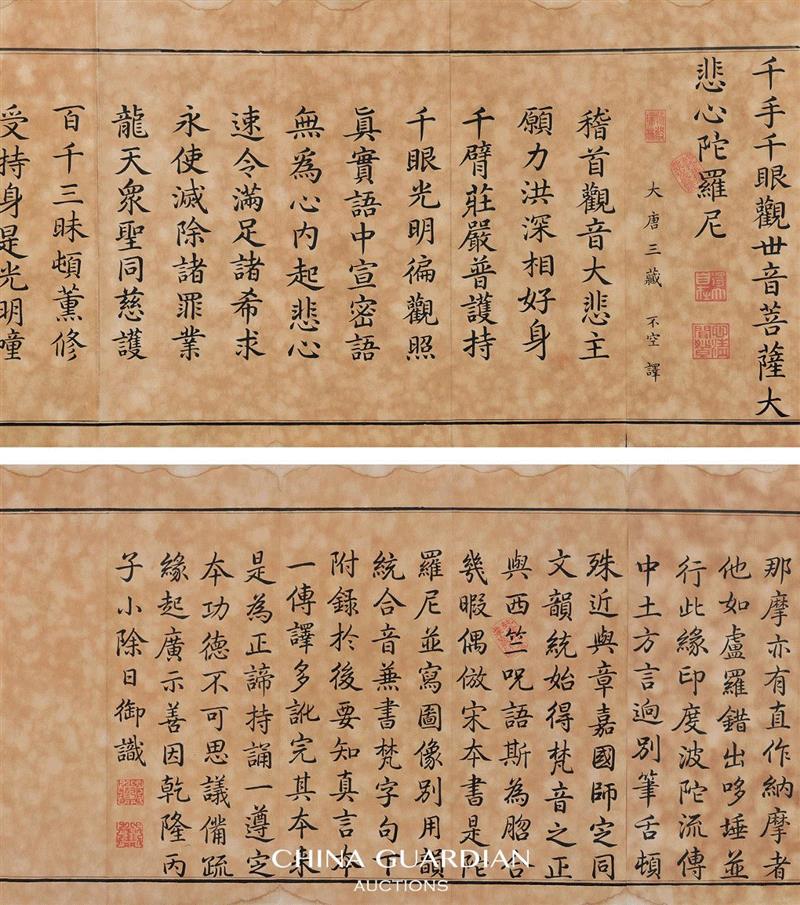 千手千眼觀世音菩薩大
悲心陀羅尼
大唐三藏 不空 譯
稽首觀音大悲主
願力洪深相好身
千臂莊嚴普護持
千眼光明徧觀照
眞實語中宣密語
無為心內起悲心
速令滿足諸希求
永使滅除諸罪業
龍天衆聖同慈護
百千三昧頓薰修
受持身是光明幢
那摩亦有直作納摩者
他如盧羅錯出哆埵並
行此緣印度波陀流傳
中土方言逈別筆舌頓
殊近與章嘉國師定同
文韻統始得梵音之正
與西竺呪語斯為脗合
幾暇偶倣宋本書是陀
羅尼並寫圖像別用韻
統合音兼書梵字句下
附錄於後要知真言本
一傳譯多訛完其本來
是為正諦持誦一遵定
本功德不可思議備疏
緣起廣示善因乾隆丙
子小除日御識
CHINA GUARDIAN
AUCTIONS